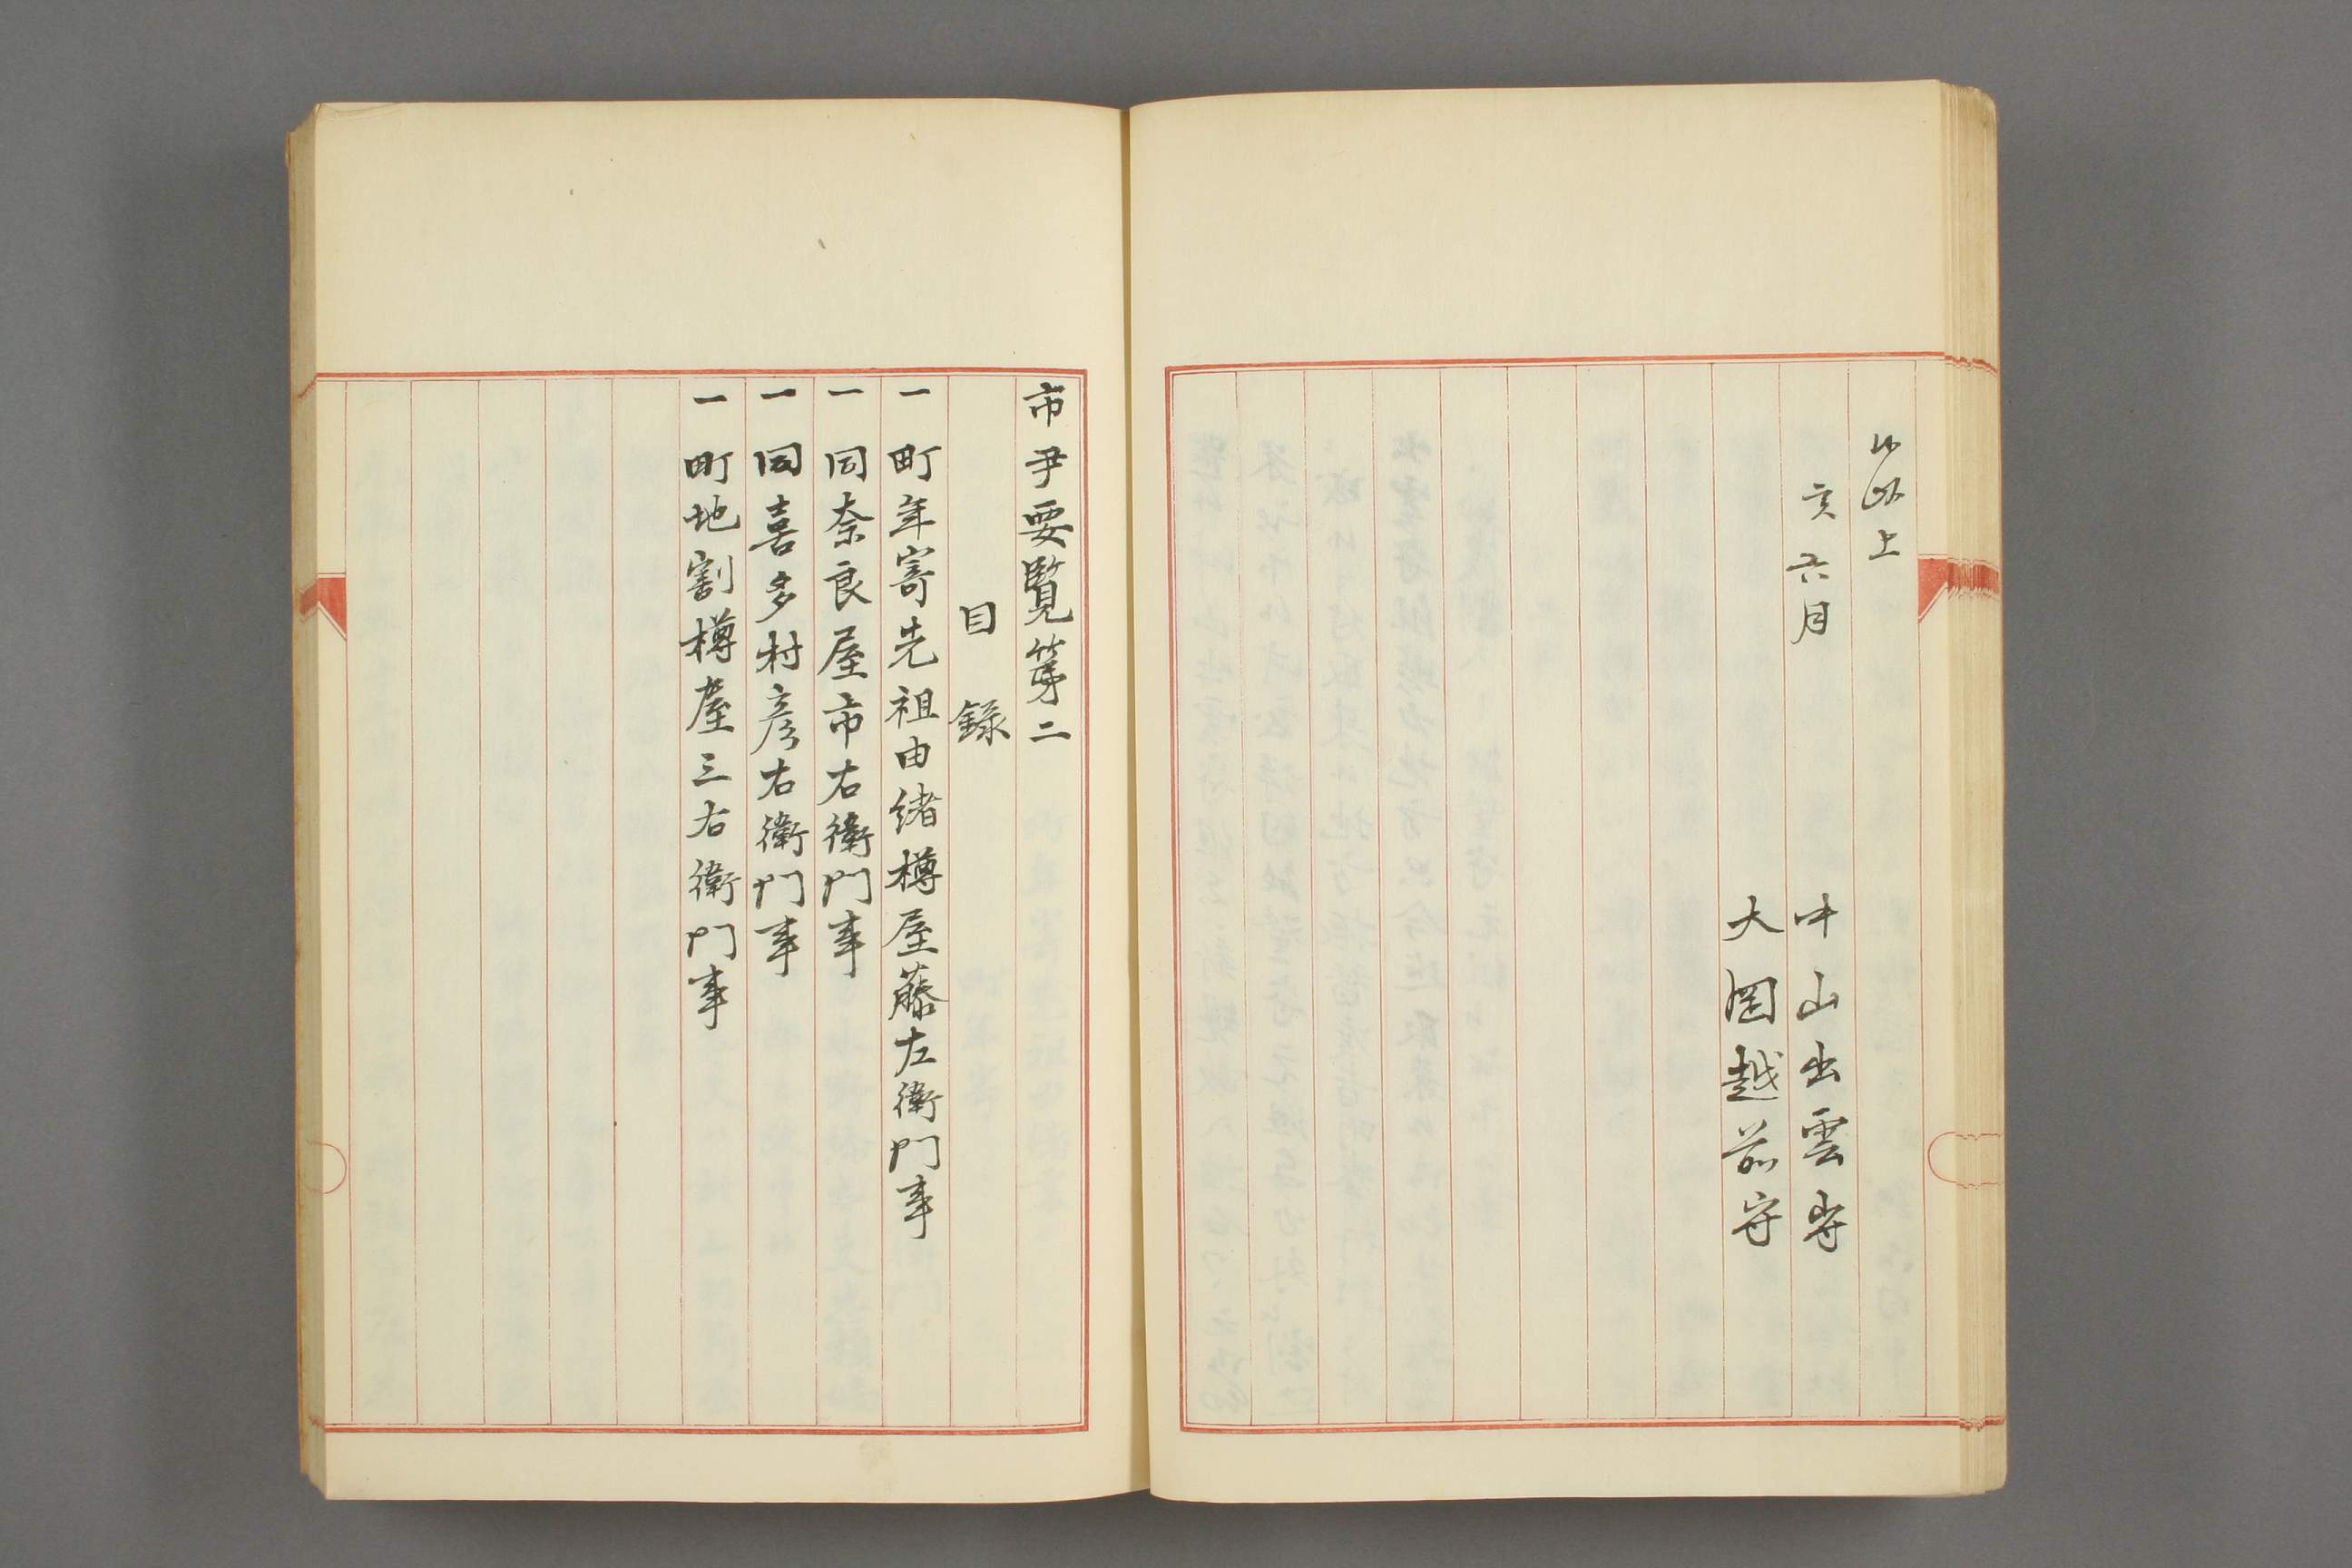 候以上
亥六月
中山出雲守
大岡越前守
市尹要覧第二
目録
一 町年寄先祖由緒樽屋藤左衛門事
一 同奈良屋市右衛門事
一 同喜多村彦右衛門事
一 町地割樽屋三右衛門事